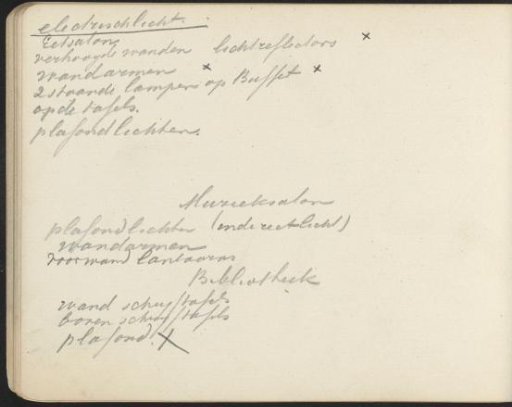 electrischlicht.
Eetsalon
verhoogde wanden lichtreflectors x
wandarmen x
2 staande lampen op Buffet x
op de tafels.
plafondlichten.
Muzieksalon
plafondlichten (indirectlicht)
wandarmen
voorwand lantaarns
Bibliotheek
wand schrijftafels
boven schrijftafels
plafond. x